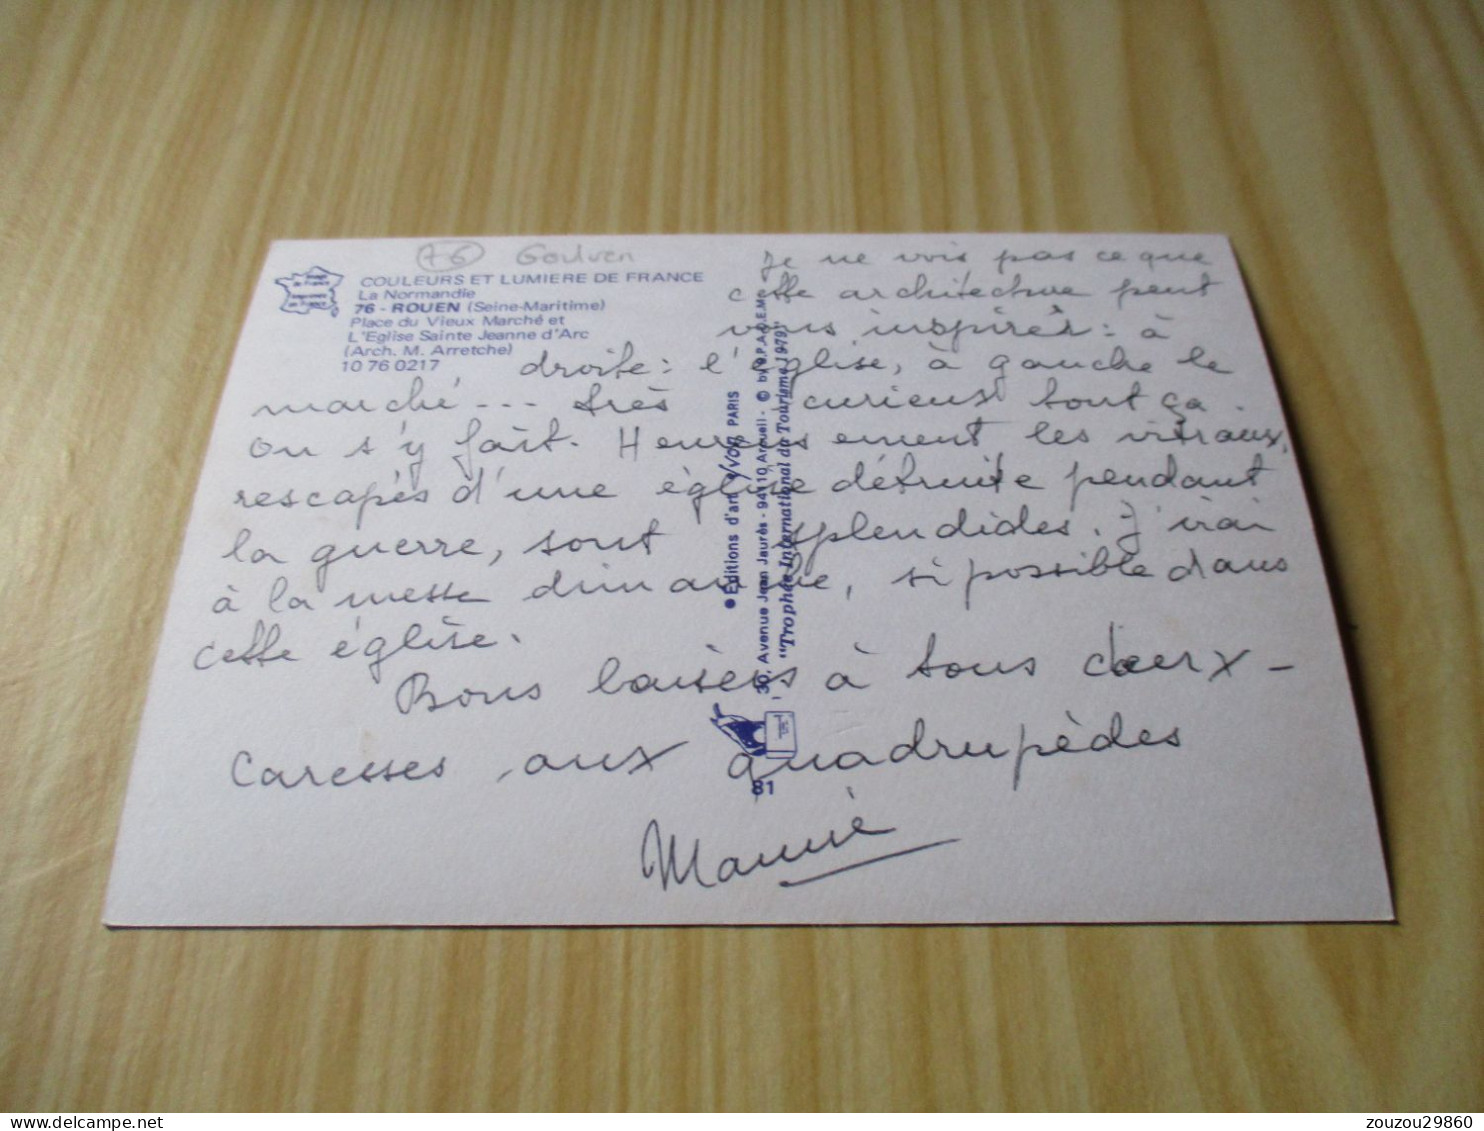 76 Goulven
COULEURS ET LUMIERE DE FRANCE
La Normandie
76 - ROUEN (Seine-Maritime)
Place du Vieux Marché et
L'Eglise Sainte Jeanne d'Arc
(Arch. M. Arretche)
10 76 0217
Je ne vois pas ce que
cette architecture peut
vous inspirer : à
droite : l'église, à gauche le
marché --- très curieux tout ça.
On s'y fait. Heureusement les vitraux,
rescapés d'une église détruite pendant
la guerre, sont splendides. J'irai
à la messe dimanche, si possible dans
cette église.
Bons baisers à tous deux -
Caresses aux quadrupèdes
● Editions d'art yvon PARIS
30, Avenue Jean Jaurès - 94110 Arcueil - © by S.P.A.D.E.M.
"Trophée International du Tourisme 1979"
81
zouzou29860
delcampe.net